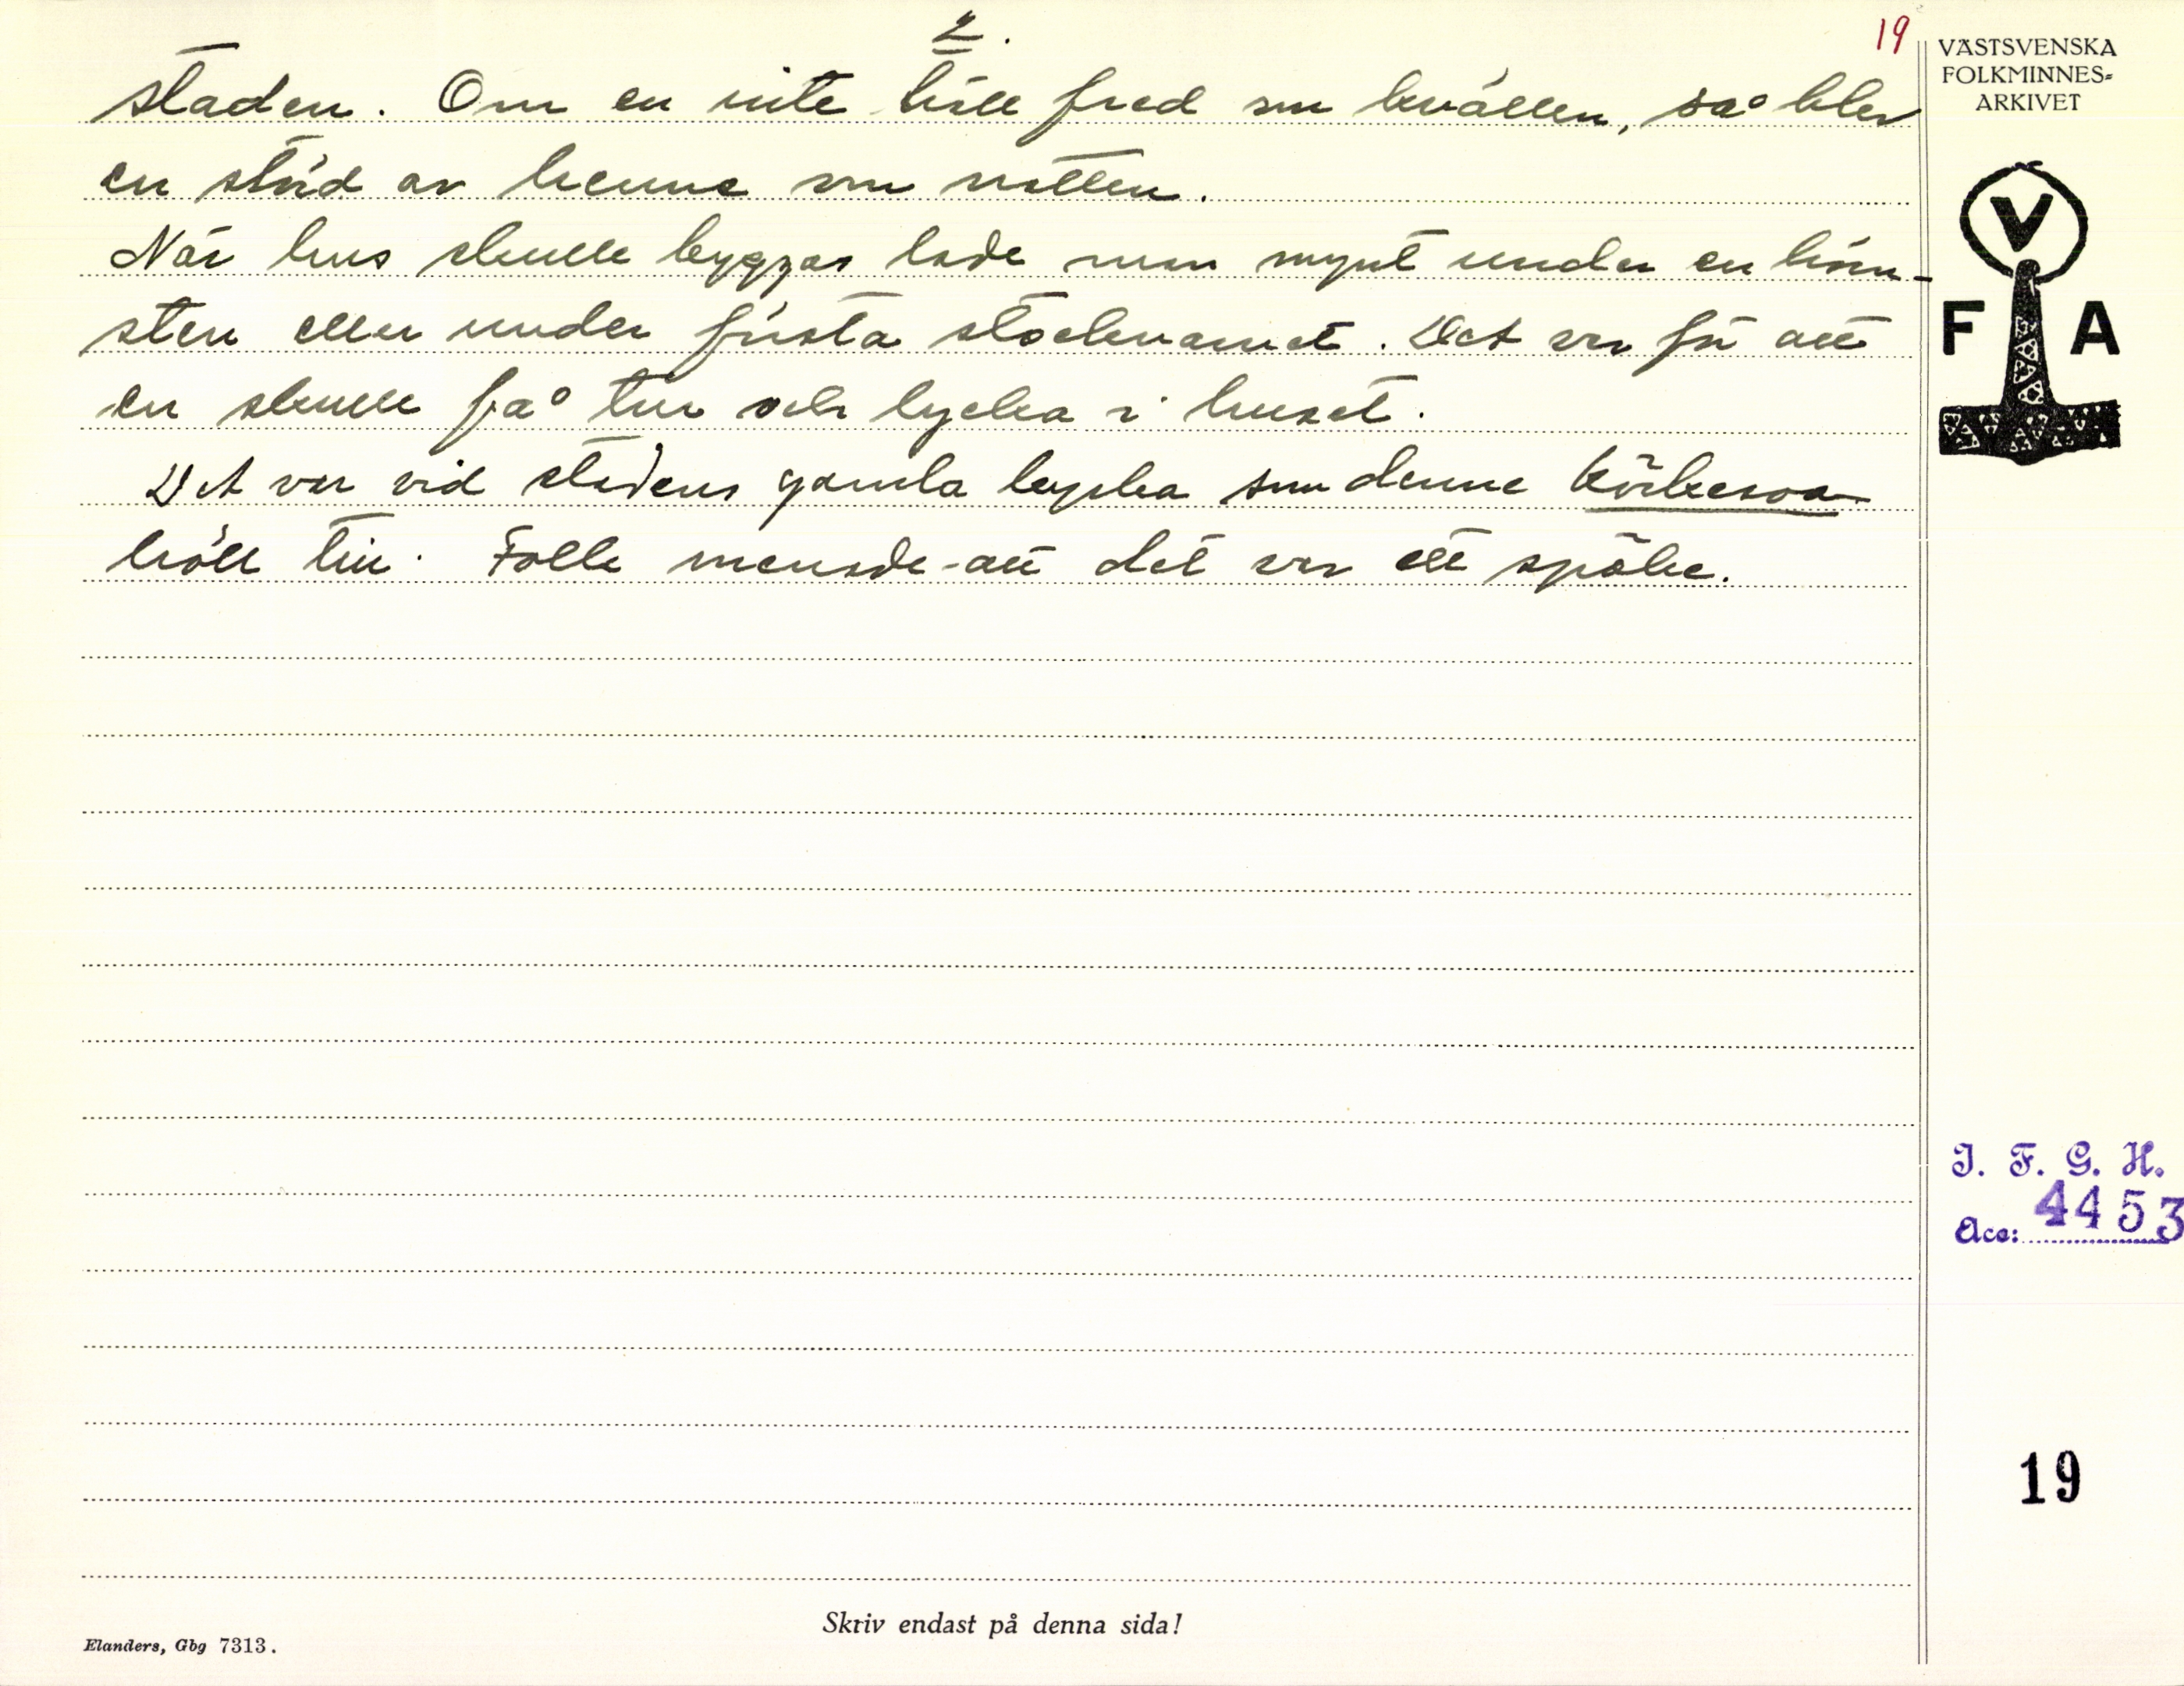 2.
19
staden. Om en inte höll fred om kvällen, så blev
en störd av henne om natten.
När hus skulle byggas lade man mynt under en hörn-
sten eller under första stockvarvet. Det var för att
en skulle få tur och lycka i huset.
Det var vid stadens gamla kyrka som denne körkesoa
höll till. Folk menade att det var ett spöke.
VÄSTSVENSKA
FOLKMINNES-
ARKIVET
V
F A
I. F. G. H.
Acc: 4453
19
Skriv endast på denna sida!
Elanders, Gbg 7313.